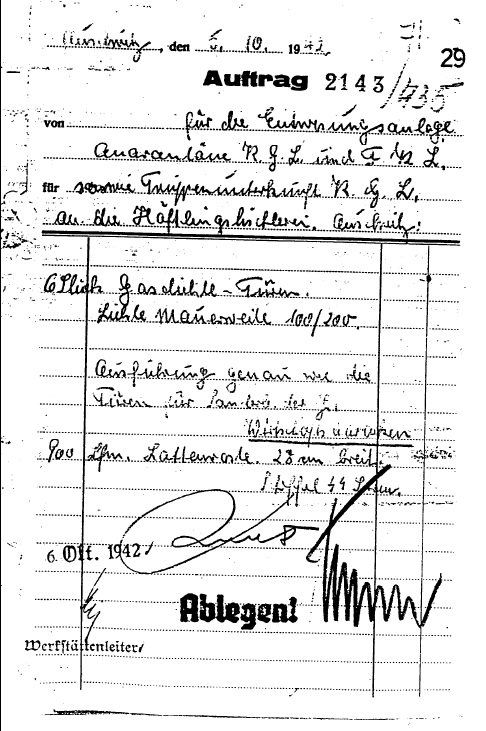 Auschwitz, den 6. 10. 1942
29
Auftrag 2143/435
von für die Entwesungsanlage
Quarantäne K. G. L. und F. K. L.
für sowie Truppenunterkunft K. G. L.
an die Häftlingstischlerei. Auschwitz:
6 Stück Gasdichte-Türen.
Lichte Mauerweite 100/200.
Ausführung genau wie die
Türen für der
Wirtschaftsbaracken
900 Lfm. Lattenroste. 28 cm breit.
6. Okt. 1942
Ablegen!
Werkstättenleiter